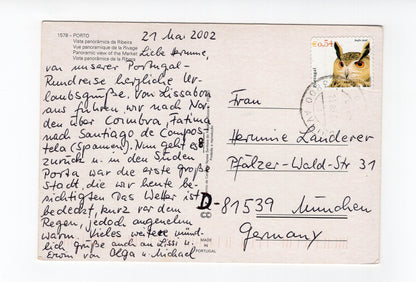 1578 - PORTO
Vista panorâmica da Ribeira
Vue panoramique de la Rivage
Panoramic view of the Market
Vista panorámica de la Ribera
21 Mai 2002
Liebe Hermine,
von unserer Portugal-
Rundreise herzliche Ur-
laubsgrüße. Von Lissabon
aus fuhren wir nach Nor-
den über Coimbra, Fatima
nach Santiago de Compos-
tela (Spanien). Nun geht es
zurück u. in den Süden
Porto war die erste große
Stadt, die wir heute be-
sichtigten Das Wetter ist
bedeckt, kurz vor dem
Regen, jedoch angenehm
warm. Vieles weitere münd-
lich Grüße auch an Lissi u.
Erwin von Olga u. Michael
€0,54
Frau
Hermine Länderer
Pfälzer-Wald-Str 31
D-81539 München
Germany
MADE
IN
PORTUGAL